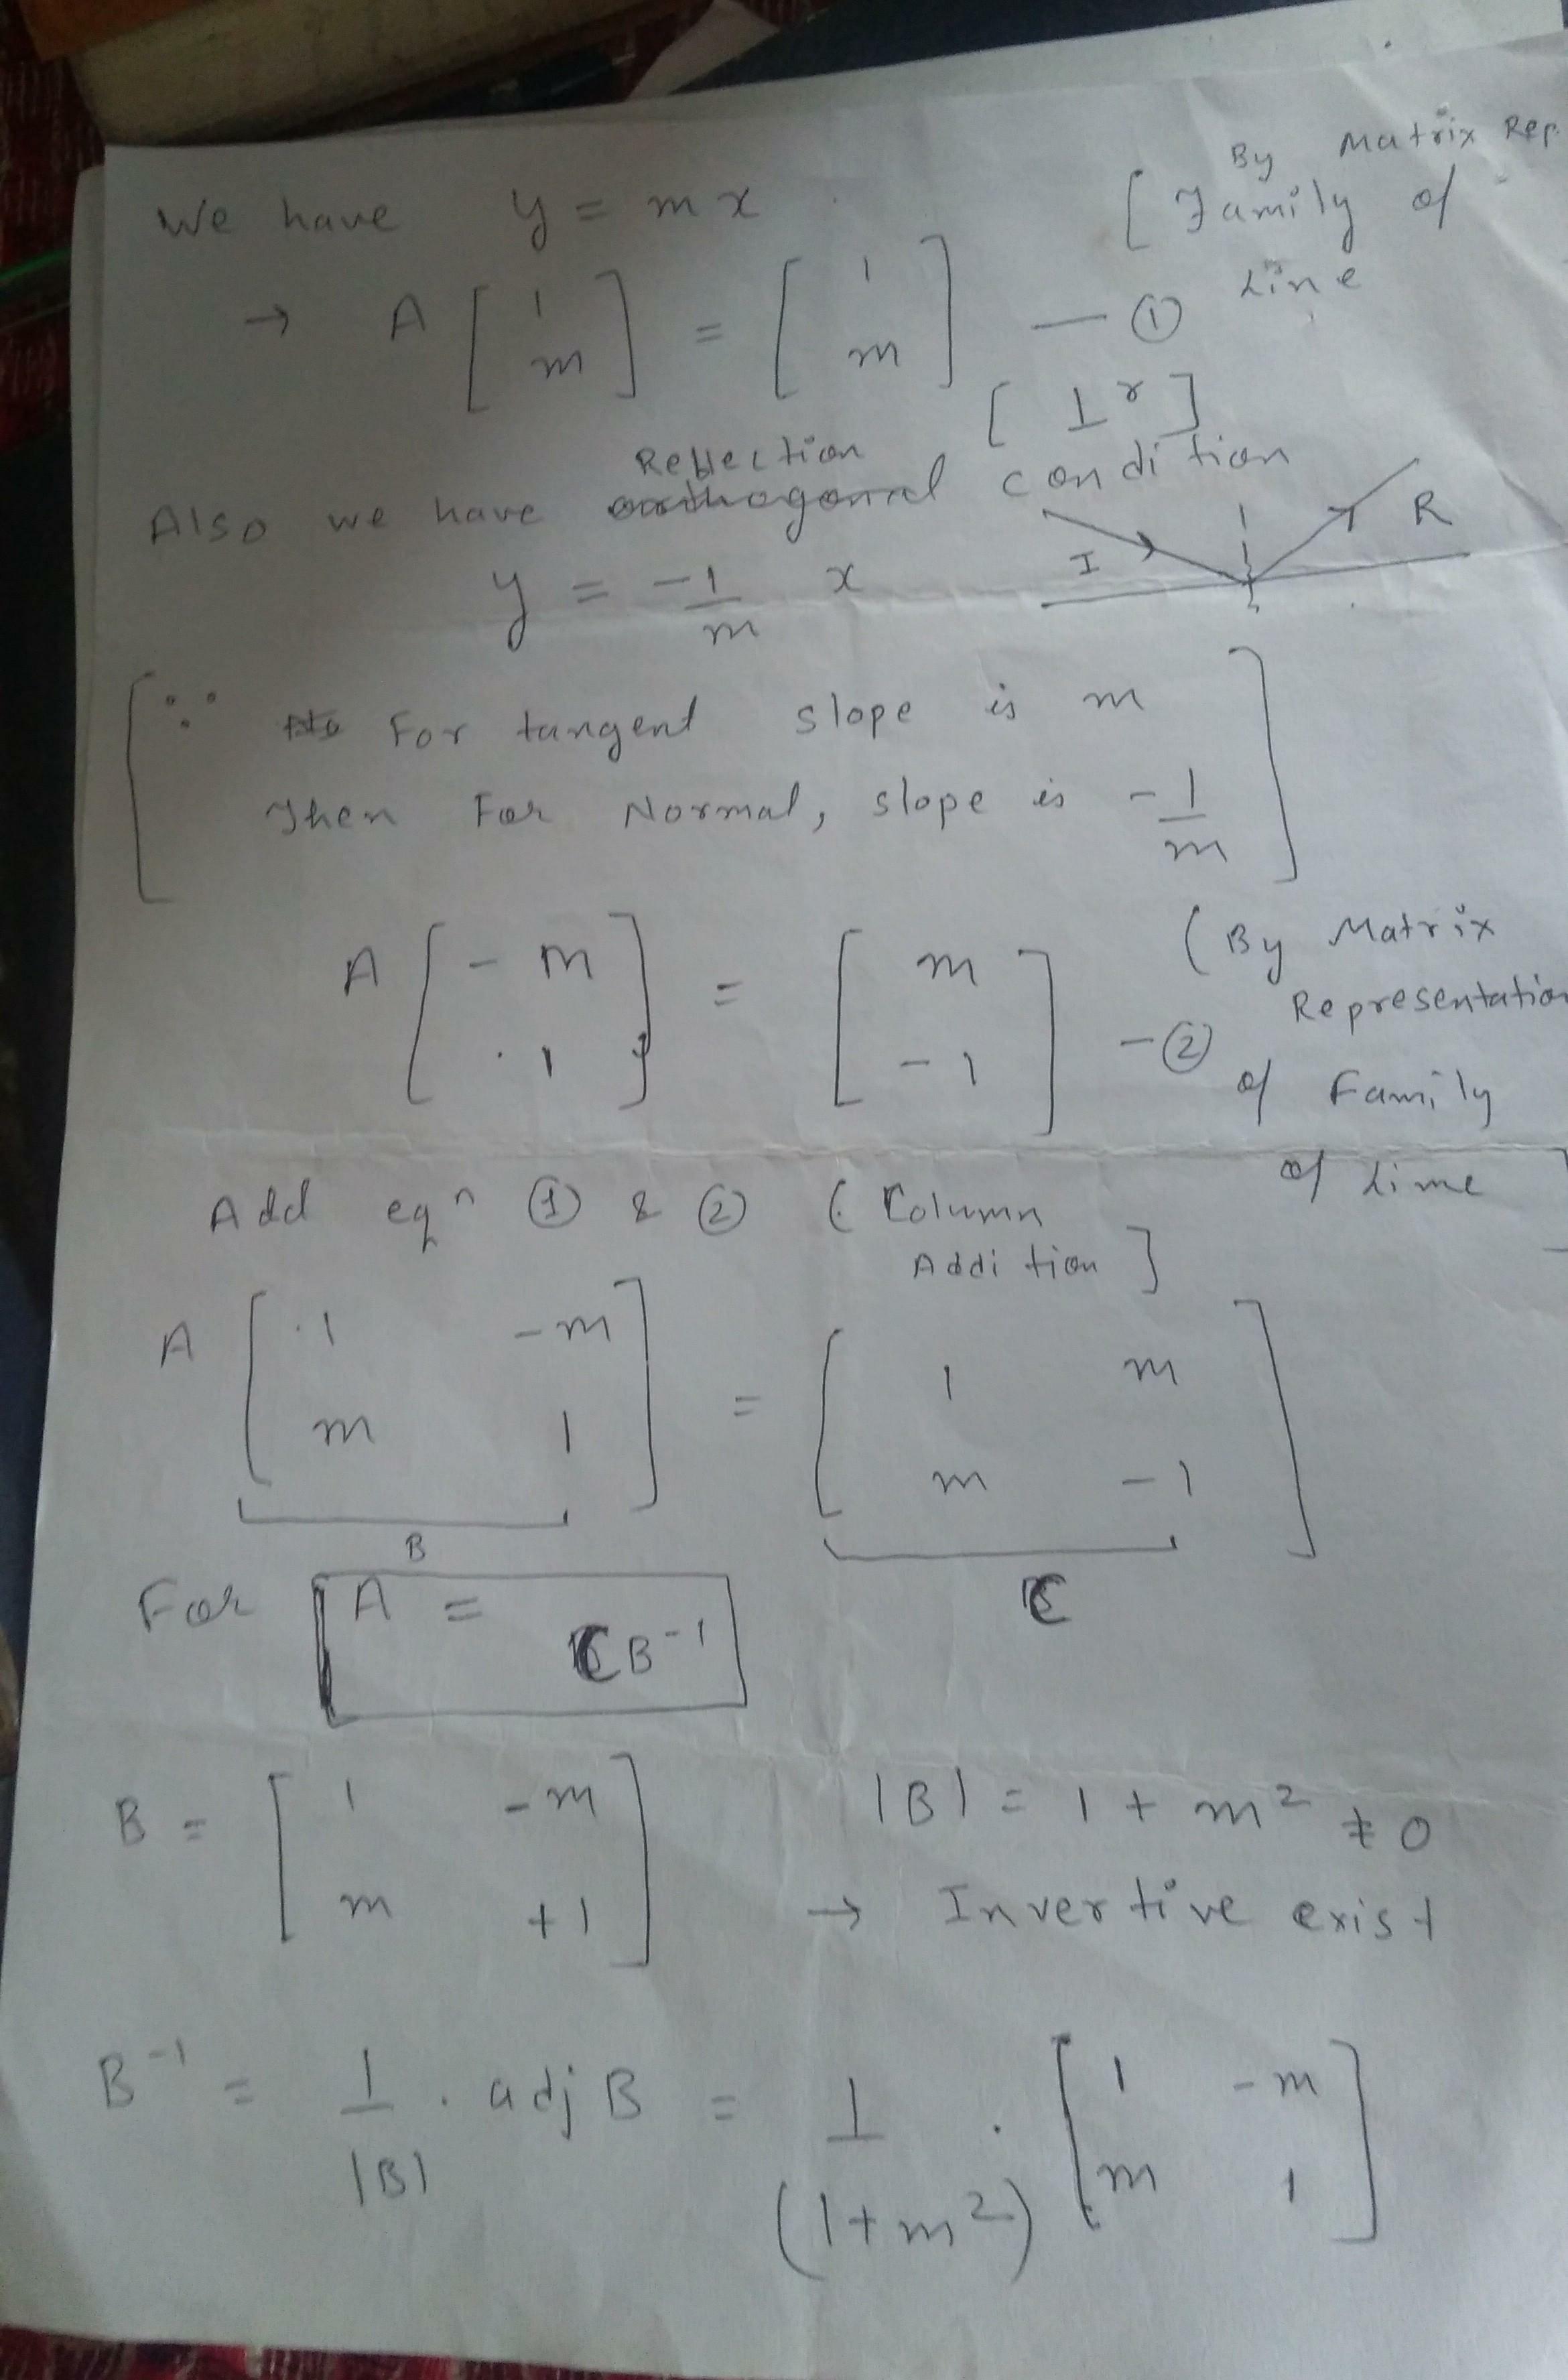 By Matrix Rep.
We have y = mx [ Family of
Line
→ A [ 1 m ] = [ 1 m ] — ①
[ ⊥ʳ ]
Reflection
Also we have condition
I R
y = -1/m x
[ ∵ For tangent slope is m
Then For Normal, slope is -1/m ]
A [ -m 1 ] = [ m -1 ] - ② ( By Matrix
Representation
of Family
of Line ]
Add eqⁿ ① & ② ( Column
Addition ]
A [ 1 -m
m 1 ] = [ 1 m
m -1 ]
B C
For A = C B⁻¹
B = [ 1 -m
m +1 ] |B| = 1 + m² ≠ 0
→ Invertive exist
B⁻¹ = 1/|B| . adj B = 1/(1+m²) . [ 1 -m
m 1 ]